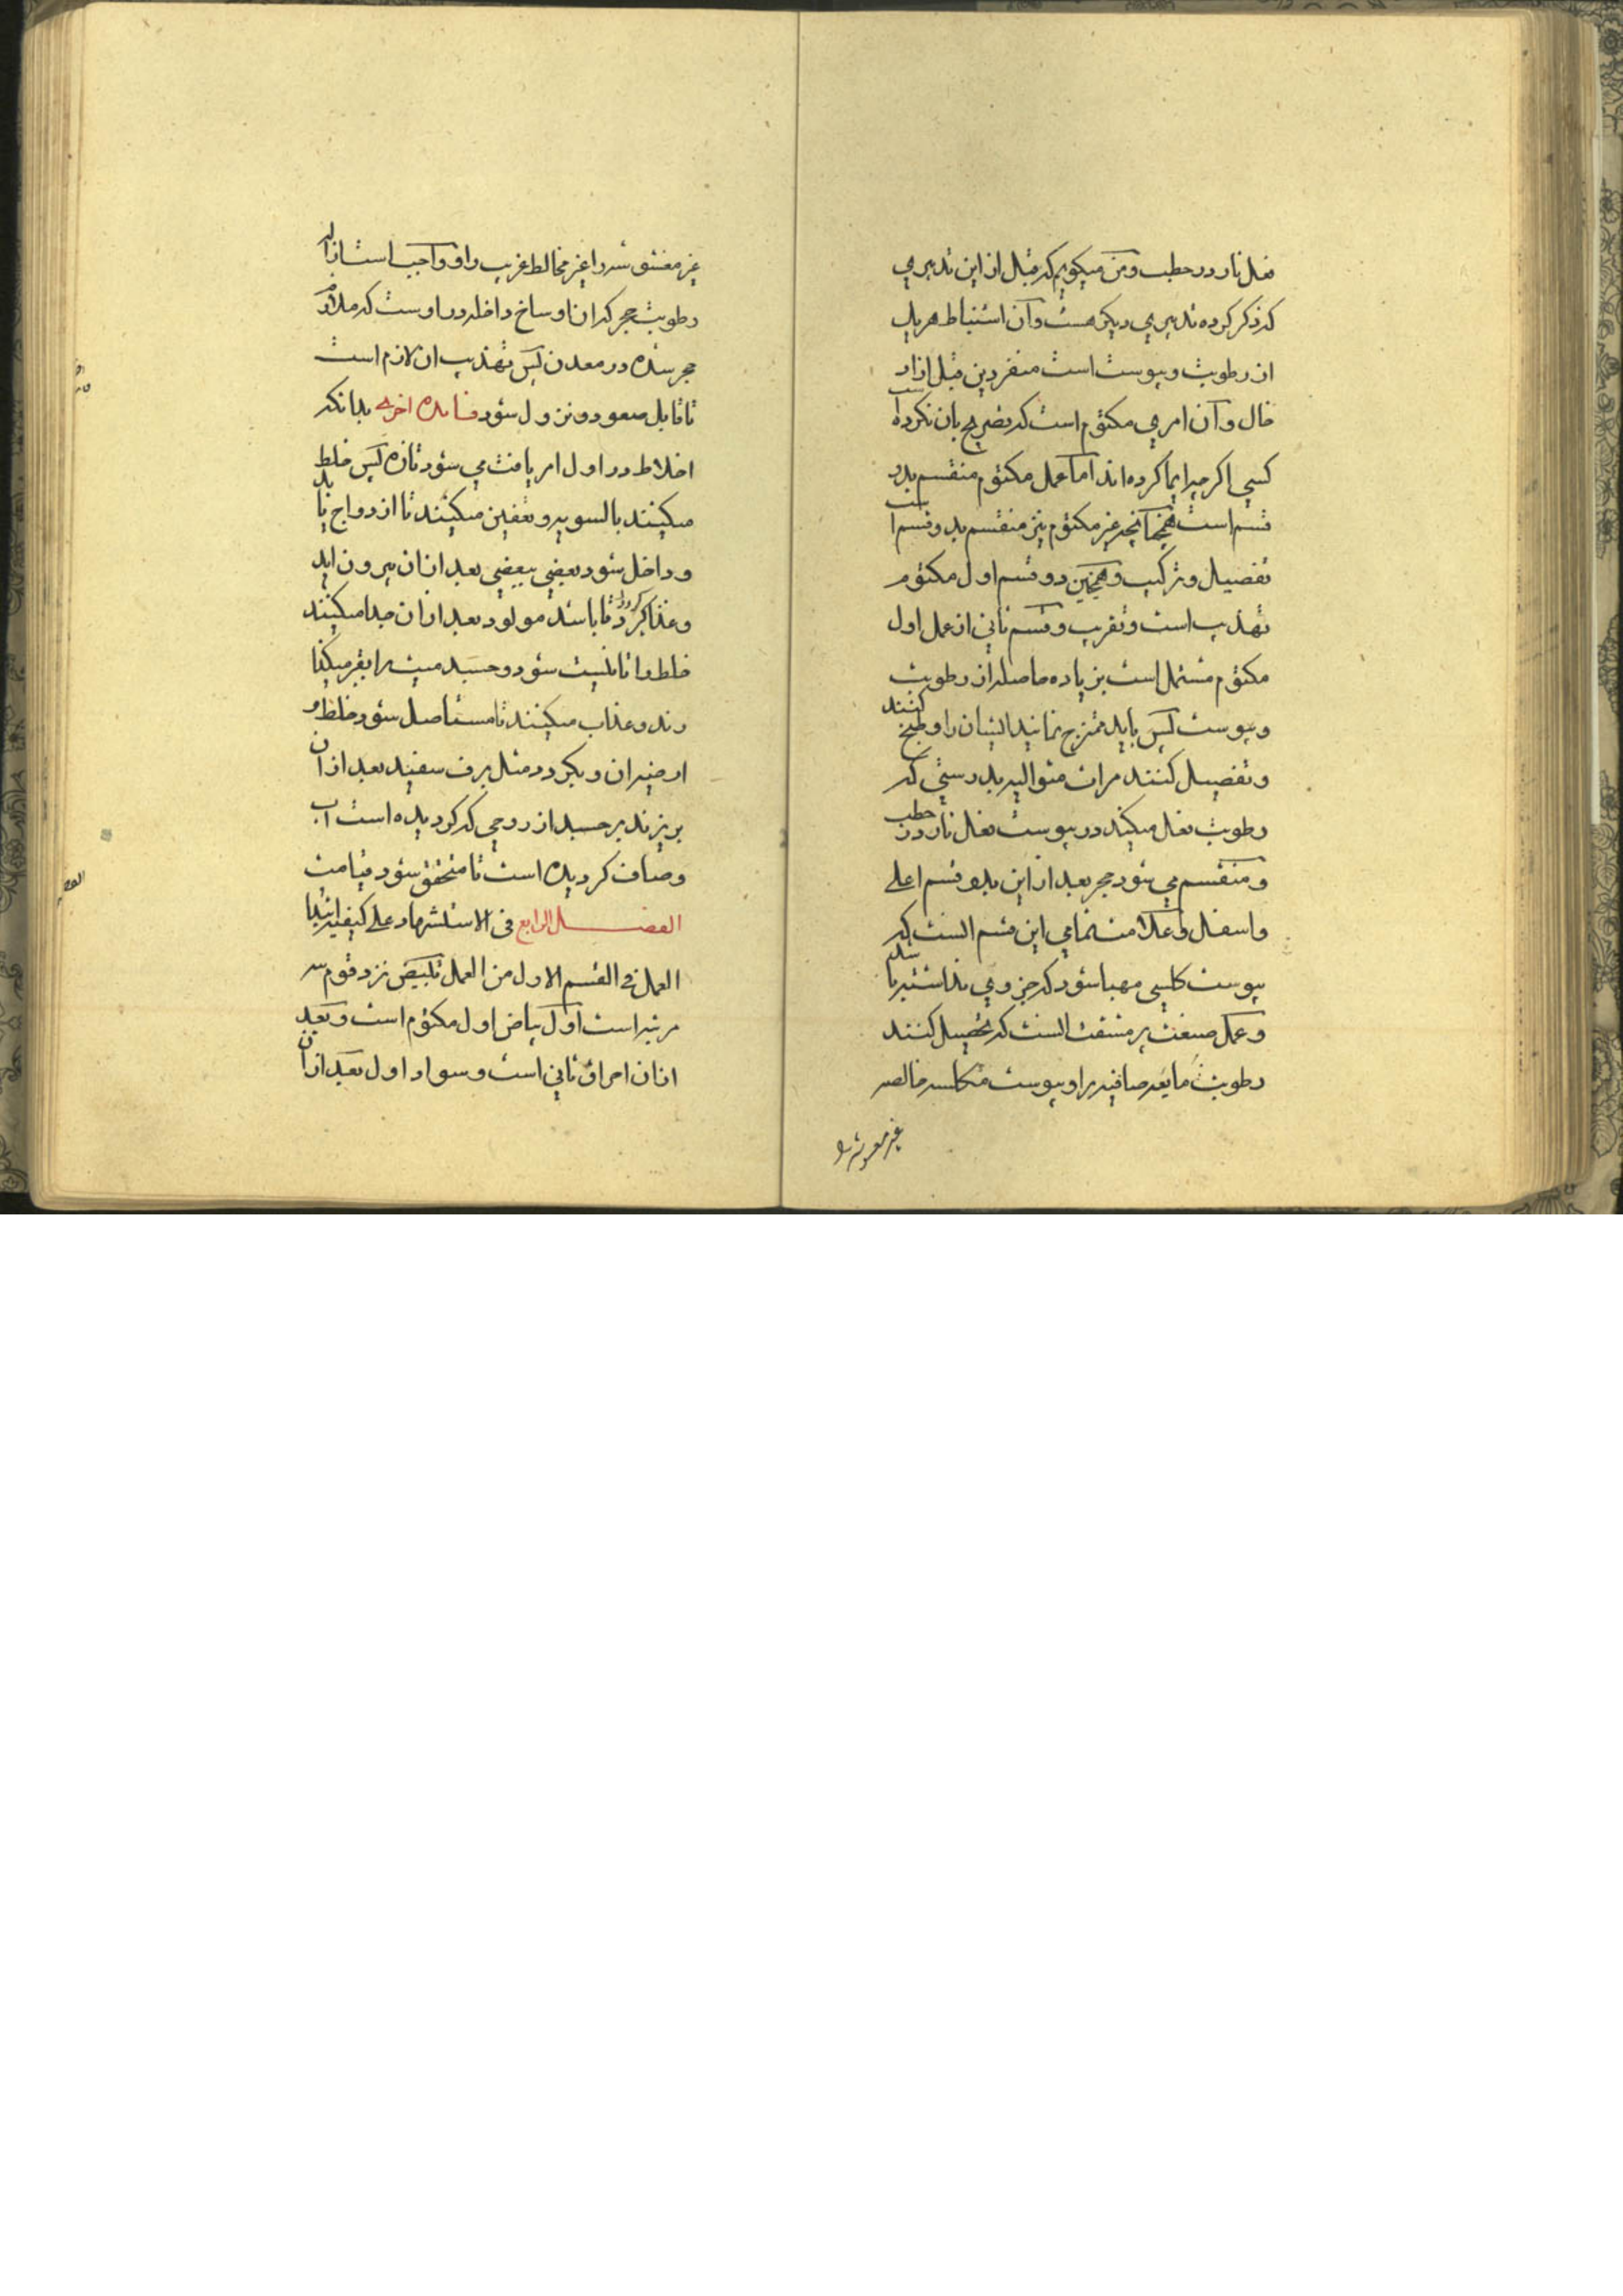 فعل نار در حطب و من میکویم که قبل از این تدبیری
که ذکر کرده تدبیری دیکر هست و آن استنباط هر یک
از رطوبت و یبوست است منفردین قبل از ار
خال و آن امری مکتوم است که تصریح بان نکرده است
کسی اکرچه ایما کرده اند اما عمل مکتوم منقسم بدو
قسم است همچنانچه غیر مکتوم نیز منقسم بدو قسم است
تفصیل و ترکیب و همچنین دو قسم اول مکتوم
تهذیب است و تقریب و قسم ثانی از عمل اول
مکتوم مشتمل است بزیاده حاصله از رطوبت
و یبوست پس باید ممتزج نمانید ایشان را و طبخ کنند
و تفصیل کنند مرات متوالیه بدرستی که
رطوبت فعل میکند در یبوست فعل نار در حطب
و منقسم می شود حجر بعد از این بدو قسم اعلی
و اسفل و علامت تمامی این قسم انست که
یبوست کلسی مهبا شود که جزوی نداشته باشد
و عمل صنعت پر مشقت انست که تحصیل کنند
رطوبت مایعه صافیه را و یبوست متکلسه خالصه
غیر مغشوشه را
غیر مغشوشه را غیر مخالط غریب را و واجب است ازاله
رطوبت حجر که ان اوساخ داخله در اوست که ملازم
حجر شده در معدن پس تهذیب ان لازم است
تا قابل صعود و نزول شود فایده اخری بدانکه
اخلاط در اول امر یافت می شود تازه پس خلط
میکنند بالسویه و تعفین میکنند تا ازدواج یابد
و داخل شود بعضی ببعضی بعد از ان بیرون اید
و غذا کیرد تا باشد مولود بعد از ان جدا میکنند
خلط را تا نیست شود و جسد میت را بقبر میکذا
رند و عذاب میکنند تا مستاصل شود خلط و
ارضیه ان و بکردد مثل برف سفید بعد از ان
بریزند بر جسد از روحی که کردیده است آب
و صاف کردیده است تا متحقق شود قیامت
الفصل الرابع فی الاستشهاد علی کیفیة ابتداء
العمل فی القسم الاول من العمل تبییض نزد قوم سه
مرتبه است اول بیاض اول مکتوم است و بعد
از ان احراق ثانی است و سواد اول بعد از ان